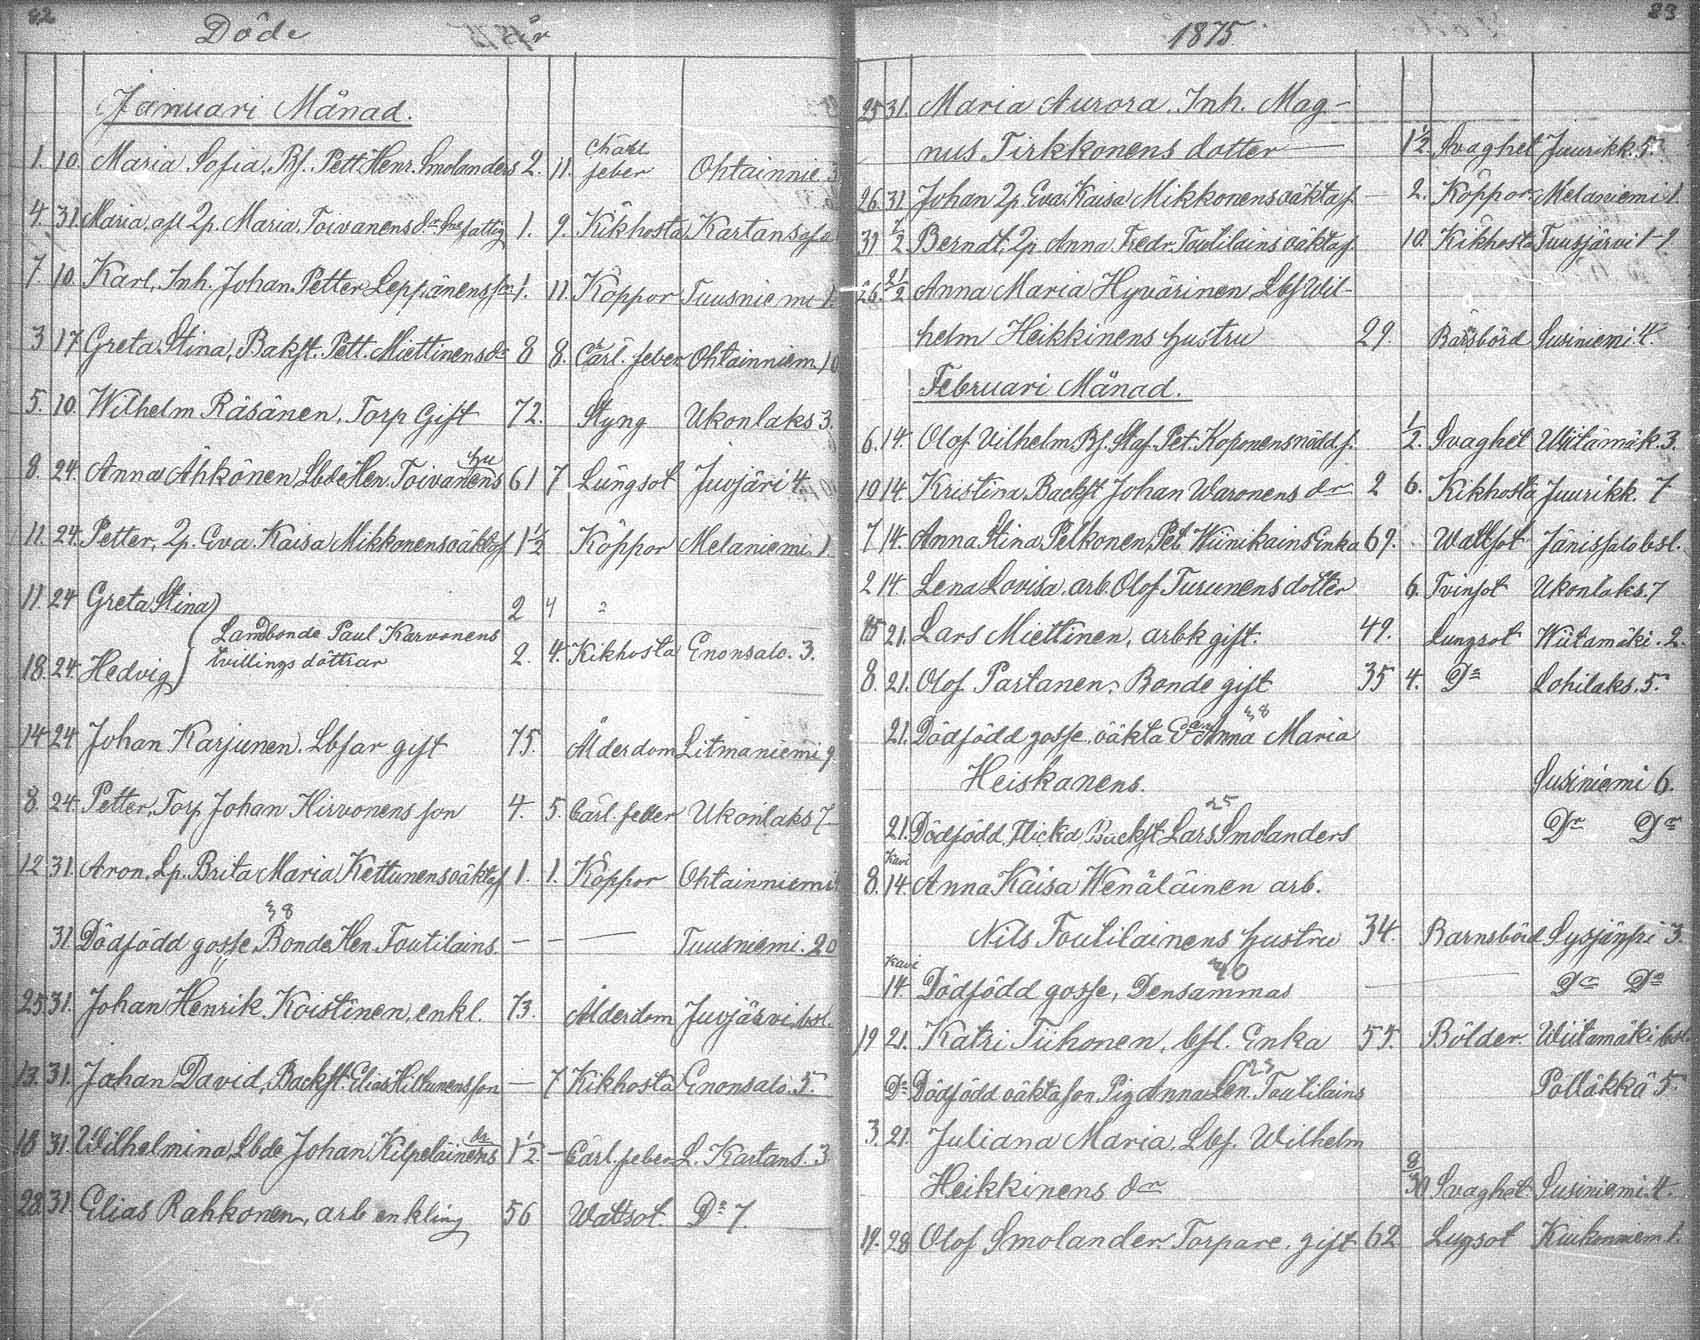 82
Döde år
Januari Månad.
1. 10. Maria Sofia, Bf. Pett. Henr. Smolanders 2. 11. Charl feber Ohtainnie. 3
4. 31. Maria, afl 2p. Maria Toivanens dr fattig 1. 9. Kikhosta Kartans
7. 10. Karl, Inh. Johan Petter Leppänens son 1. 11. Koppor Tuusniemi 1.
3 17 Greta Stina, Bakst. Pett. Miettinens dr 8 8. Carl. feber Ohtainniem. 10
5. 10. Wilhelm Räsänen, Torp Gift 72. Styng Ukonlaks 3.
8. 24. Anna Ahkonen Lbde Hen. Toivanens hu 61 7 Lungsot Juojäri 4.
11. 24. Petter, 2p. Eva Kaisa Mikkonens oäkta f 1 1/2 Koppor Melaniemi. 1.
11. 24 Greta Stina 2 4 "
Landbonde Paul Karvonens
tvillings döttrar
18. 24. Hedvig 2. 4. Kikhosta Enonsalo. 3.
14 24 Johan Karjunen. Lbfar gift 75. Ålderdom Litmaniemi 9
8. 24. Petter, Torp Johan Hirvonens son 4. 5. Carl. feber Ukonlaks 7.
12 31. Aron, Lp. Brita Maria Kettunens oäkta f 1. 1. Koppor Ohtainniemi
38
31. Dödfödd gosse, Bonde Hen. Toutilains. — — — Tuusniemi. 20
25 31. Johan Henrik Koistinen, enkl. 73. Ålderdom Juojärvi bsl.
13. 31. Johan David, Backst. Elias Hiltunens son — 7 Kikhosta Enonsalo. 5.
18 31. Wilhelmina, Lbde Johan Kilpeläinens dr 1 1/2 — Carl. feber L. Kartans. 3.
28. 31. Elias Rahkonen, arb enkling 56 Wattsot. Do 7.
83
1875
25 31. Maria Aurora. Inh. Mag-
nus Tirkkonens dotter — 1 1/2. Svaghet Juurikk. 5.
26. 31. Johan 2p. Eva Kaisa Mikkonens oäkta f. — 2. Koppor Melaniemi 1.
31 1/2 Berndt, 2p Anna Fredr. Toutilains oäkta f 10. Kikhosta Tuusjärvi 1
26. 2 1/2 Anna Maria Hyvärinen, Lbf Wil-
helm Heikkinens hustru 29. Barsbörd Susiniemi. 4.
Februari Månad.
6. 14. Olof Vilhelm Bf. Staf. Pet. Koponens f. 1/2. Svaghet Wiitamäk. 3.
10 14. Kristina Backst Johan Waronens dr 2 6. Kikhosta Juurikk. 7
7 14. Anna Stina Pelkonen, Pet Wiinikains Enka 69. Wattsot Jänissalo bsl.
2 14. Lena Lovisa, arb. Olof Turunens dotter 6. Tvinsot Ukonlaks. 7
15 21. Lars Miettinen, arbk gift. 49. Lungsot Wiitamäki. 2.
8. 21. Olof Partanen. Bonde gift 35 4. Do Lohilaks. 5.
38
21. Dödfödd gosse, oäkta Anna Maria
Heiskanens. Susiniemi 6.
25
21. Dödfödd flicka, Backst Lars Smolanders Do Do
Kavi
8. 14. Anna Kaisa Wenäläinen arb.
Nils Toutilainens hustru 34. Barnsbörd Sysjänpi 3.
Kavi 40
14. Dödfödd gosse, Densammas — — Do Do
19 21. Katri Tiihonen, bsl. Enka 55. Bölder. Wiitamäki bsl.
23
Do Dödfödd oäkta son, Pig Anna Len. Toutilains Pollakkä 5.
3. 21. Juliana Maria, Lbf. Wilhelm
Heikkinens dr 8/30 Svaghet Susiniemi. 4.
19. 28 Olof Smolander. Torpare. gift 62 Lugsot Kiukonniem 1.